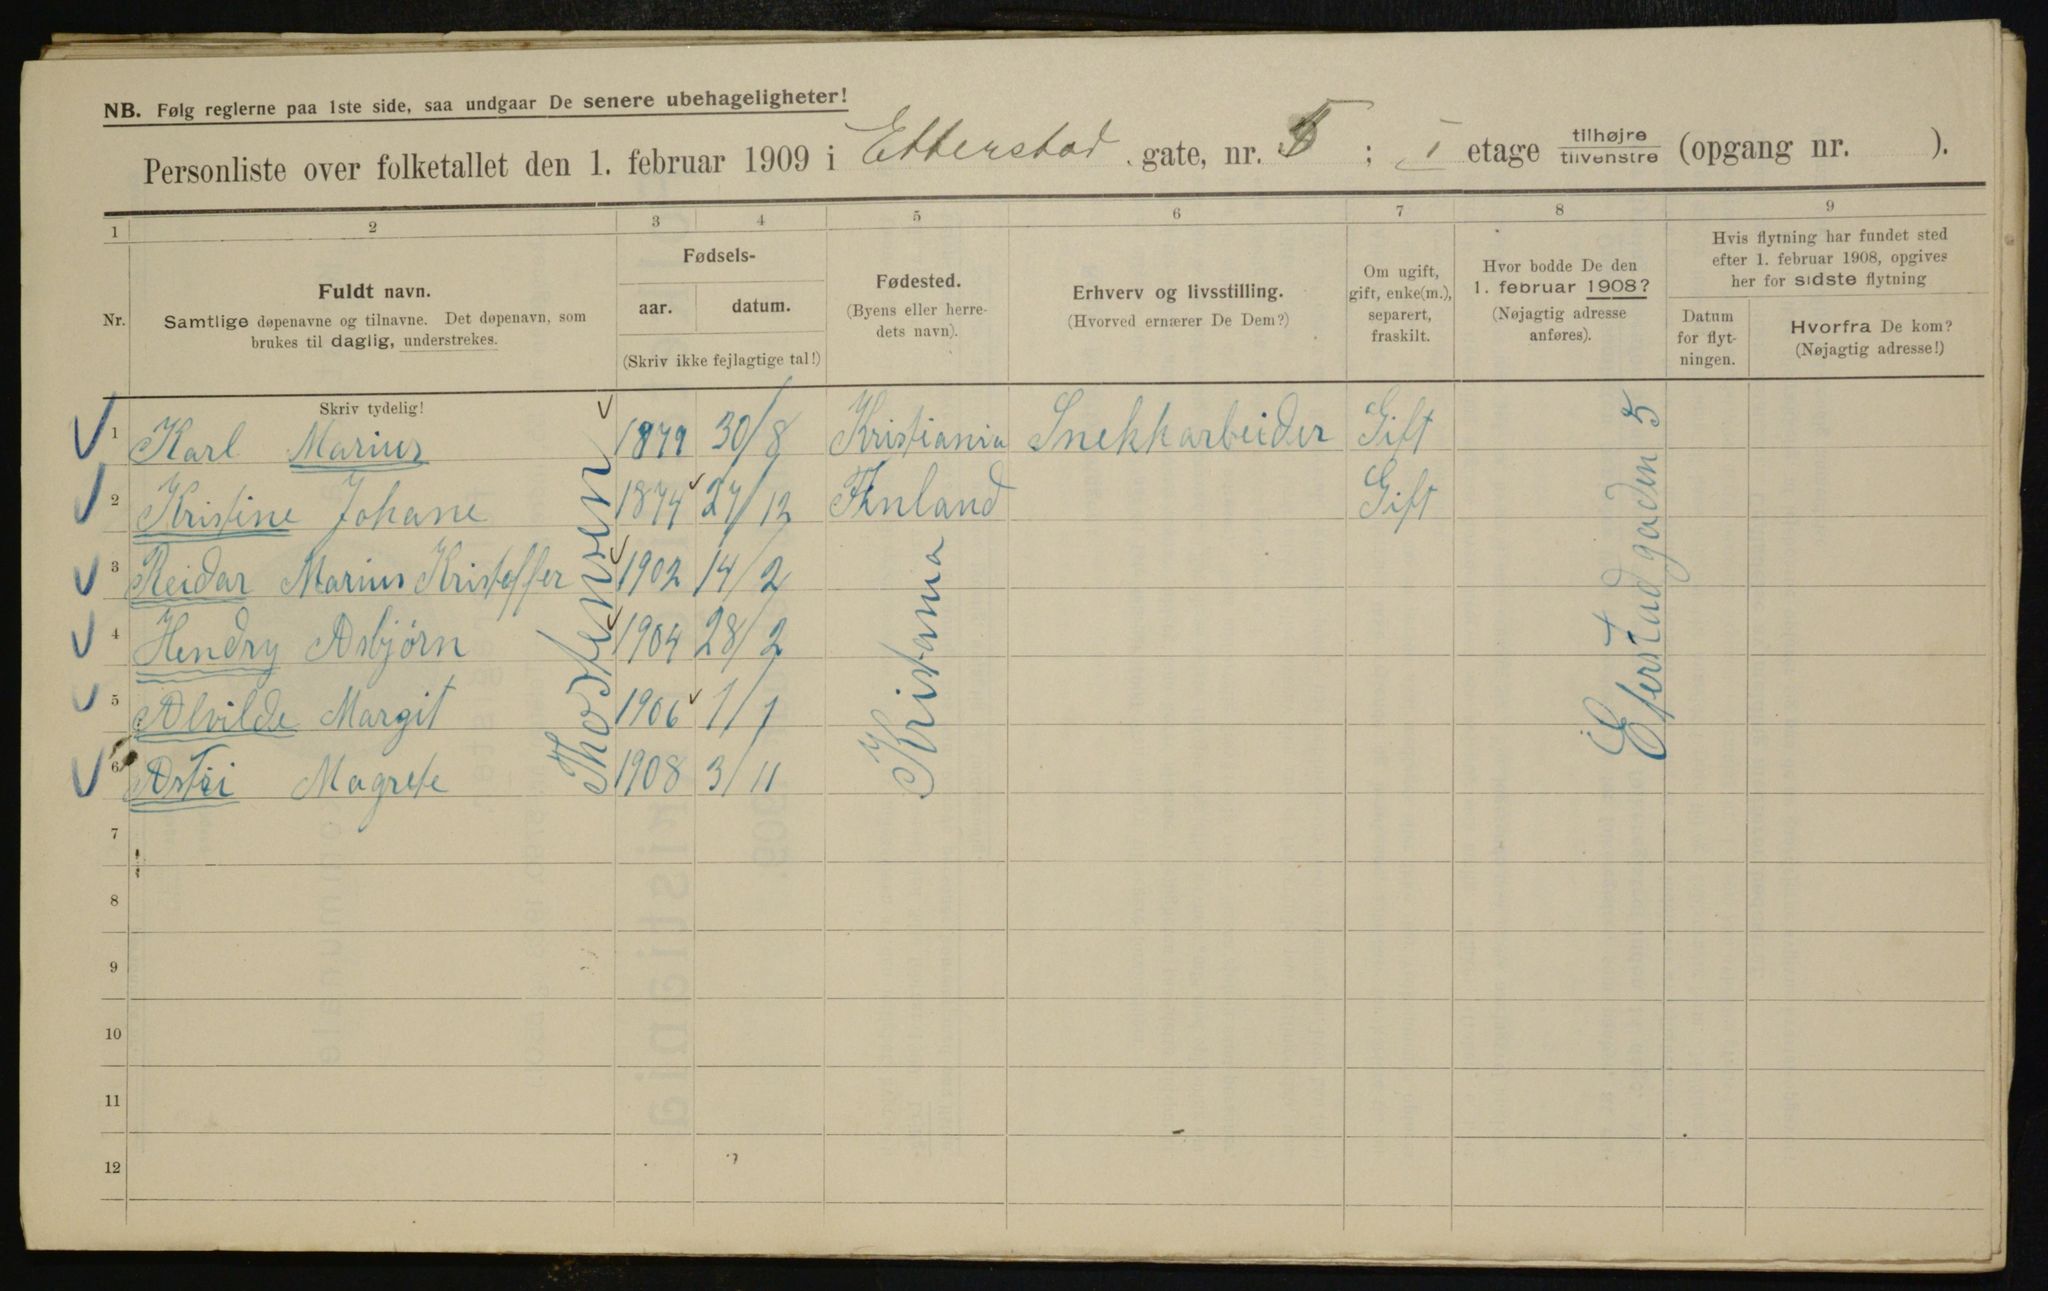 NB. Følg reglerne paa 1ste side, saa undgaar De senere ubehageligheter!
Personliste over folketallet den 1. februar 1909 i Etterstad gate, nr. 5 ; I etage tilhøjre / tilvenstre (opgang nr. ).
1 2 3 4 5 6 7 8 9
Nr.
Fuldt navn.
Samtlige døpenavne og tilnavne. Det døpenavn, som
brukes til daglig, understrekes.
Fødsels-
aar. datum.
(Skriv ikke fejlagtige tal!)
Fødested.
(Byens eller herre-
dets navn).
Erhverv og livsstilling.
(Hvorved ernærer De Dem?)
Om ugift,
gift, enke(m.),
separert,
fraskilt.
Hvor bodde De den
1. februar 1908?
(Nøjagtig adresse
anføres).
Hvis flytning har fundet sted
efter 1. februar 1908, opgives
her for sidste flytning
Datum
for flyt-
ningen.
Hvorfra De kom?
(Nøjagtig adresse!)
Skriv tydelig!
1 Karl Marius 1879 30/8 Kristiania Snekkarbeider Gift
2 Kristine Johane 1874 27/12 Finland Gift
3 Reidar Marius Kristoffer 1902 14/2
4 Hendry Asbjørn 1904 28/2
5 Alvilde Margit 1906 1/1
6 Astri Magrete 1908 3/11
Thostensen
Kristania
Eferstadgaden 5
7
8
9
10
11
12